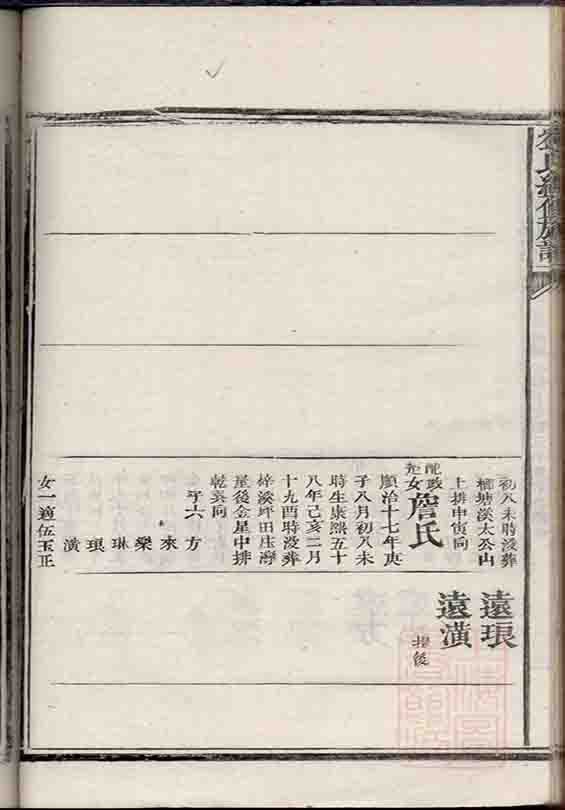 氏續修族譜
初八未時沒葬
塘漢太公山
上排申寅向
配政
女詹氏
順治十七年庚
子八月初八未
時生康熙五十
八年己亥二月
十九酉時沒葬
梓溪坪田庄灣
屋後金星中排
乾巽向
子六 方
來
樂
琳
琅
潢
女一適伍玉正
遠琅
遠潢
後